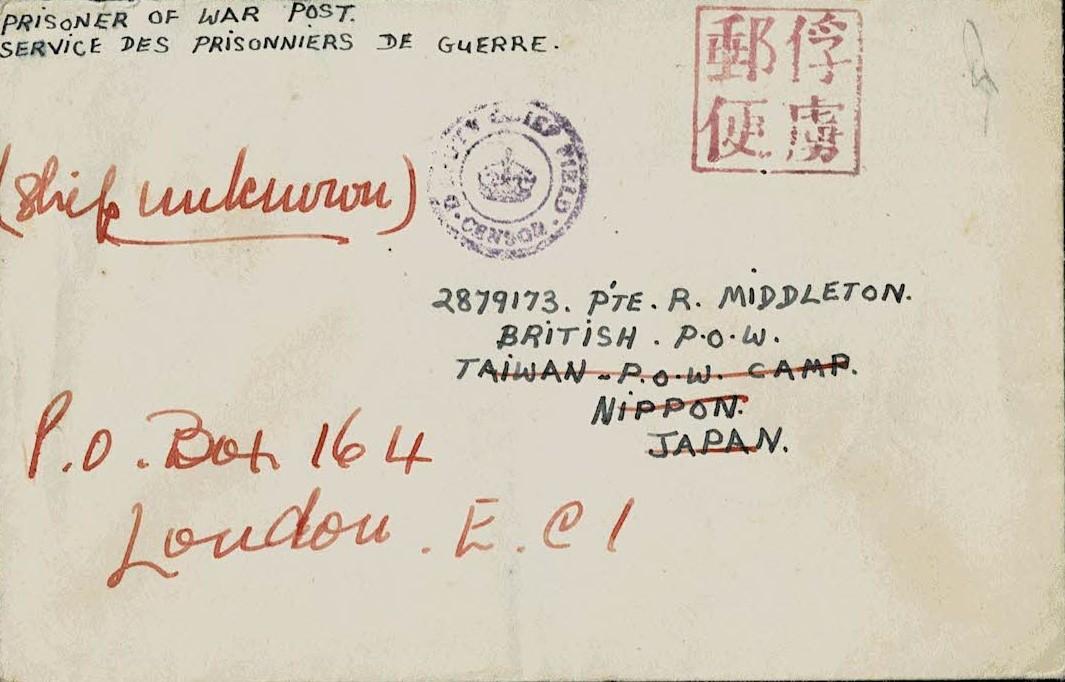 PRISONER OF WAR POST.
SERVICE DES PRISONNIERS DE GUERRE.
俘虜
郵便
DEPUTY CHIEF FIELD
· CENSOR ·
(Ship unknown)
2879173. PTE. R. MIDDLETON.
BRITISH. P.O.W.
TAIWAN - P.O.W. CAMP.
NIPPON.
JAPAN.
P.O. Box 164
London. E.C1